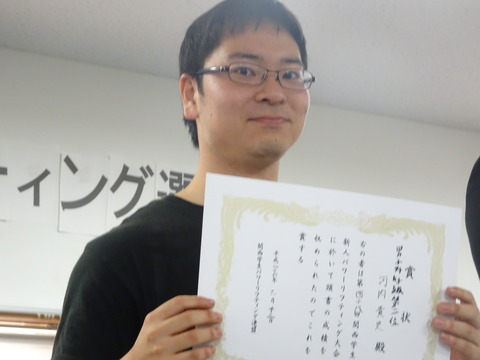 ィング選
賞状
男子
級第二位
河内 貴史 殿
右の者は第四十八回関西学生
新人パワーリフティング大会
に於いて頭書の成績を
収められたのでこれを
賞する
平成
関西学生パワーリフティング連盟